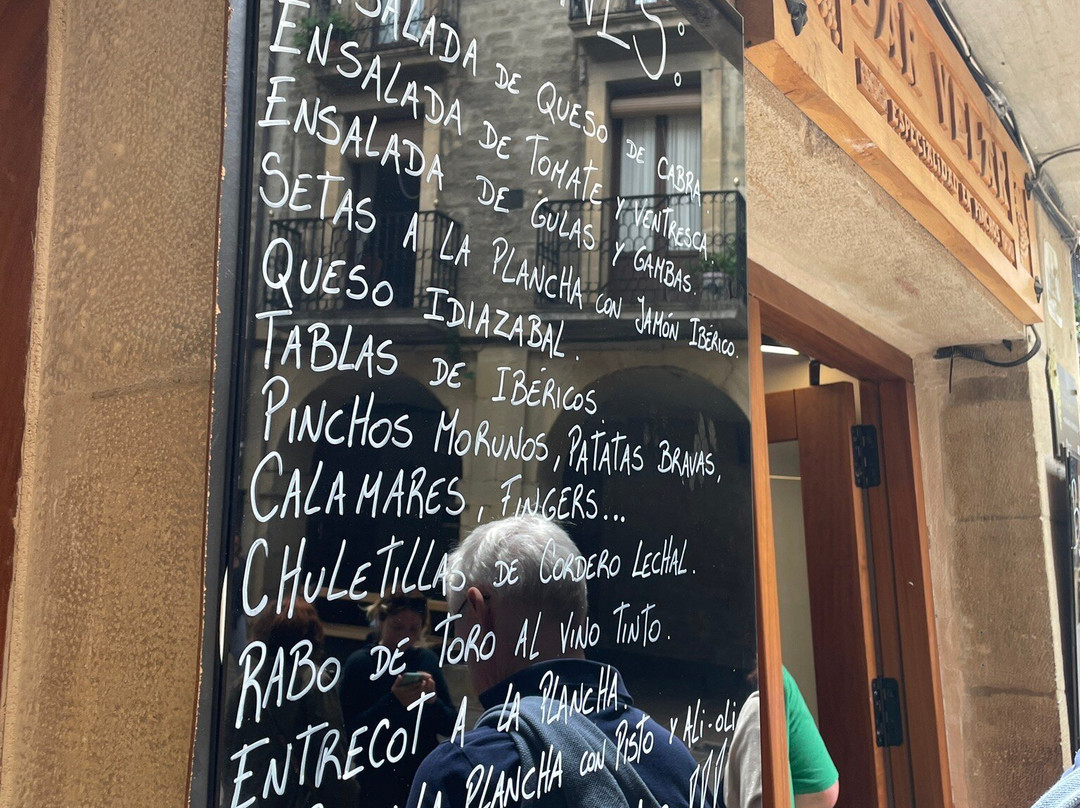 ENSALADA DE QUESO DE CABRA.
ENSALADA DE TOMATE Y VENTRESCA.
ENSALADA DE GULAS Y GAMBAS.
SETAS A LA PLANCHA CON JAMÓN IBÉRICO.
QUESO IDIAZABAL.
TABLAS DE IBÉRICOS.
PINCHOS MORUNOS, PATATAS BRAVAS,
CALAMARES, FINGERS...
CHULETILLAS DE CORDERO LECHAL.
RABO DE TORO AL VINO TINTO.
ENTRECOT A LA PLANCHA.
A LA PLANCHA CON PISTO Y ALI-OLI
BAR
ESPECIALIDAD EN PINCHOS